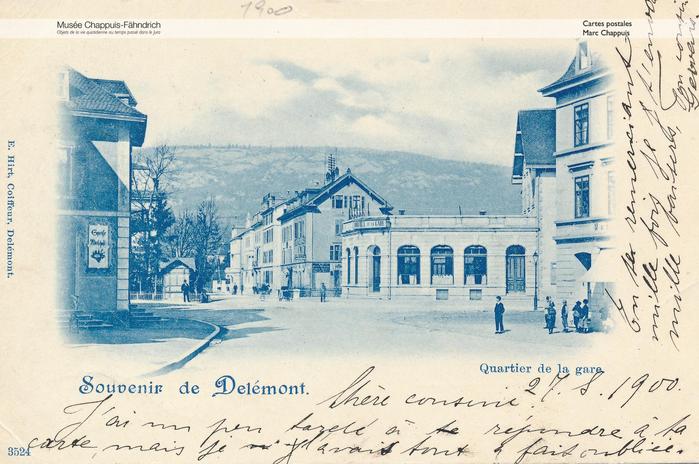 1900
Musée Chappuis-Fähndrich
Objets de la vie quotidienne au temps passé dans le Jura
Cartes postales
Marc Chappuis
E. Hirt, Coiffeur, Delémont.
Quartier de la gare.
Souvenir de Delémont.
3524
27. 8. 1900.
Chère cousine.
J'ai un peu tardé à te répondre à ta
carte, mais je n'avais tout à fait oubliée.
En te remerciant
mille fois je t'envoie
mille baisers. Ton cousin